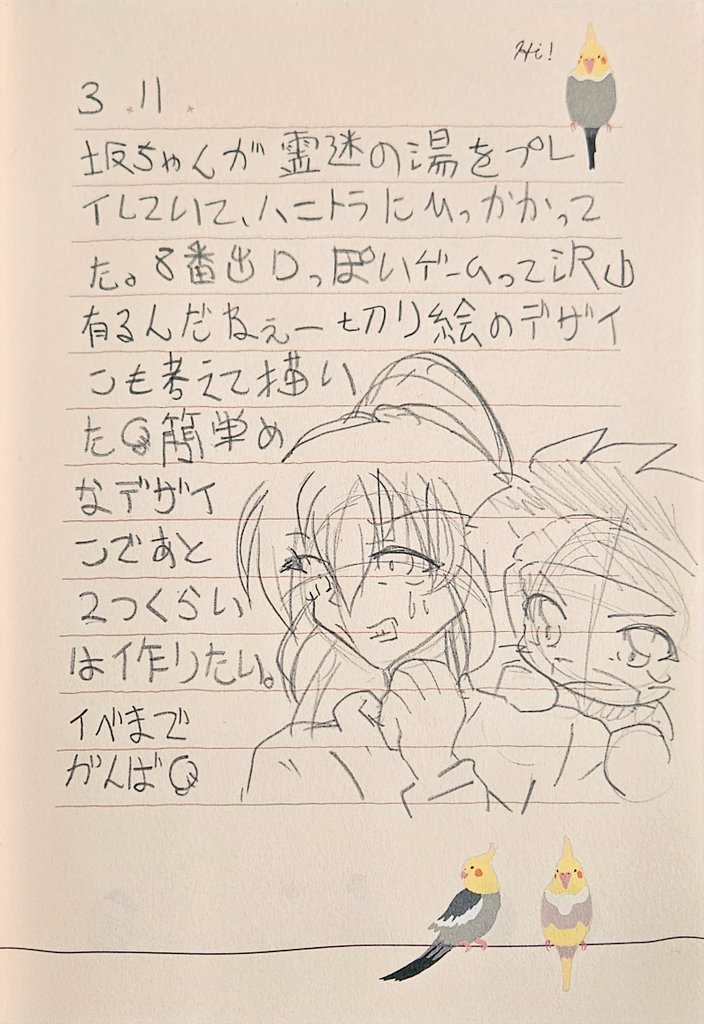 Hi!
3.11.
坂ちゃんが霊迷の湯をプレ
イしていて、ハニトラにひっかかって
た。8番出口っぽいゲームって沢山
有るんだねぇー切り絵のデザイ
ンも考えて描い
た 簡単め
なデザイ
ンであと
2つくらい
は作りたい。
イベまで
がんば